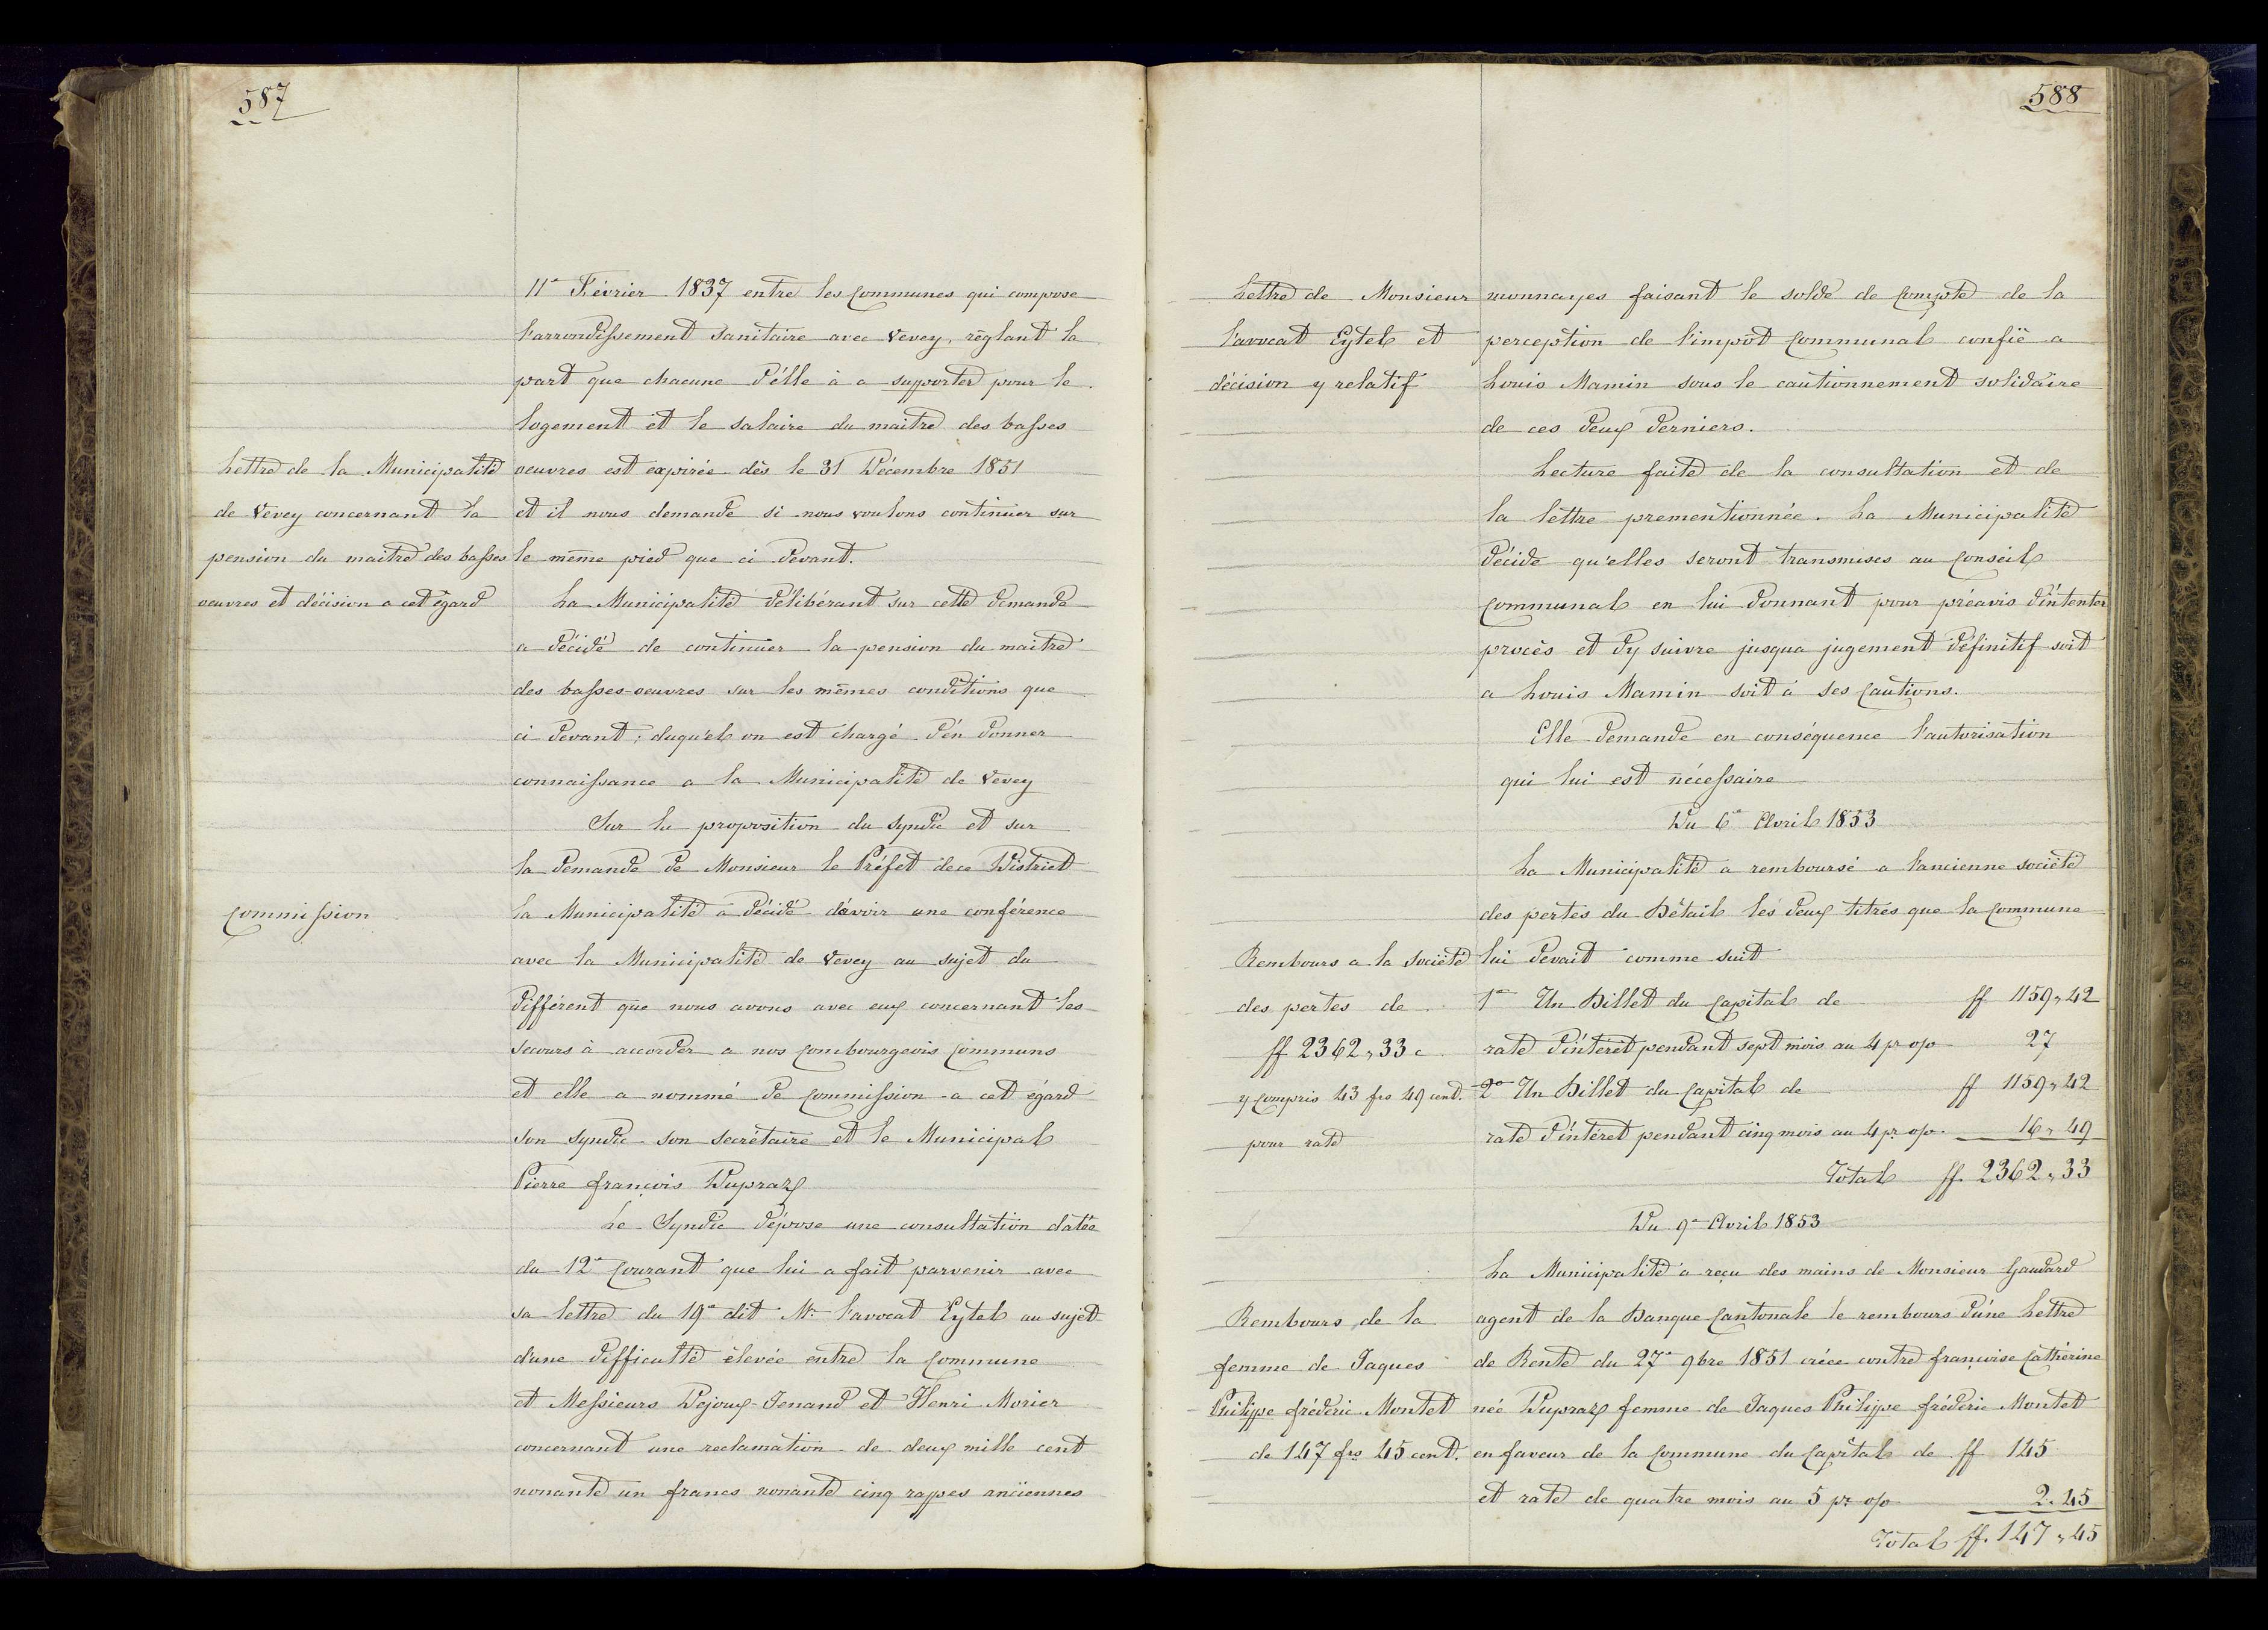 587
11e Février 1837 entre les Communes qui compose
l'arrondissement Sanitaire avec Vevey, réglant la
part que chacune d'élle à a supporter pour le
logement et le salaire du maitre des basses
Lettre de la Municipalité
de Vevey concernant la
pension du maitre des basses
oeuvres et décision a cet égard
oeuvres est expirée dès le 31 Décembre 1851
et il nous demande si nous voulons continuer sur
le même pied que ci devant.
La Municipalité délibérant sur cette demande
a décidé de continuer la pension du maitre
des basses-oeuvres sur les mêmes conditions que
ci devant; duqu'el on est chargé d'én donner
connaissance a la Municipalité de Vevey
Sur la proposition du Syndic et sur
la demande de Monsieur le Préfet dece District
Commission
la Municipalité a décidé d'avoir une conférence
avec la Municipalité de Vevey au sujet du
différent que nous avons avec eux concernant les
secours à accorder a nos Combourgeois Communs
et elle a nommé de Commission a cet égard
son syndic son secrétaire et le Municipal
Pierre françois Dupraz
Le Syndic dépose une consultation datée
du 12e Courant que lui a fait parvenir avec
sa lettre du 19e dit Mr l'avocat Eytel au sujet
d'une difficulté élevée entre la Commune
et Messieurs Dejoux-Jenand et Henri Monier
concernant une reclamation de deux mille cent
nonante un francs nonante cinq rappes anciennes
588
Lettre de Monsieur
l'avocat Eytel et
décision y relatif
monnayes faisant le solde de Compte de la
perception de l'impôt Communal confié a
Louis Mamin sous le cautionnement solidaire
de ces deux derniers.
Lecture faite de la consultation et de
la lettre prementionnée. La Municipalité
décide qu'elles seront transmises au Conseil
Communal en lui donnant pour préavis d'intenter
procès et d'y suivre jusqua jugement définitif soit
a Louis Mamin soit à ses Cautions.
Elle demande en conséquence l'autorisation
qui lui est nécessaire
Du 6e Avril 1853
La Municipalité a remboursé a l'ancienne société
des pertes du Bétail les deux titres que la Commune
Rembours a la Société
des pertes de
ff 2362,,33 c
y Compris 43 frs 49 cent.
pour rate
lui devait comme suit
1e Un Billet du Capital de ff 1159,,42
rate d'intérêt pendant sept mois au 4 pr o/o 27
2e Un Billet du Capital de ff 1159,,42
rate d'intéret pendant cinq mois au 4 pr o/o 16,,49
Total ff. 2362,,33
Du 9e Avril 1853
La Municipalité a reçu des mains de Monsieur Gaudard
Rembours de la
femme de Jaques
Philippe fréderic Montet
de 147 frs 45 cent.
agent de la Banque Cantonale le rembours d'une Lettre
de Rente du 27e 9bre 1851 créée contre françoise Catherine
née Dupraz femme de Jaques Philippe fréderic Montet
en faveur de la Commune du Capital de ff 145
et rate de quatre mois au 5 pr o/o 2.45
Total ff. 147,,45